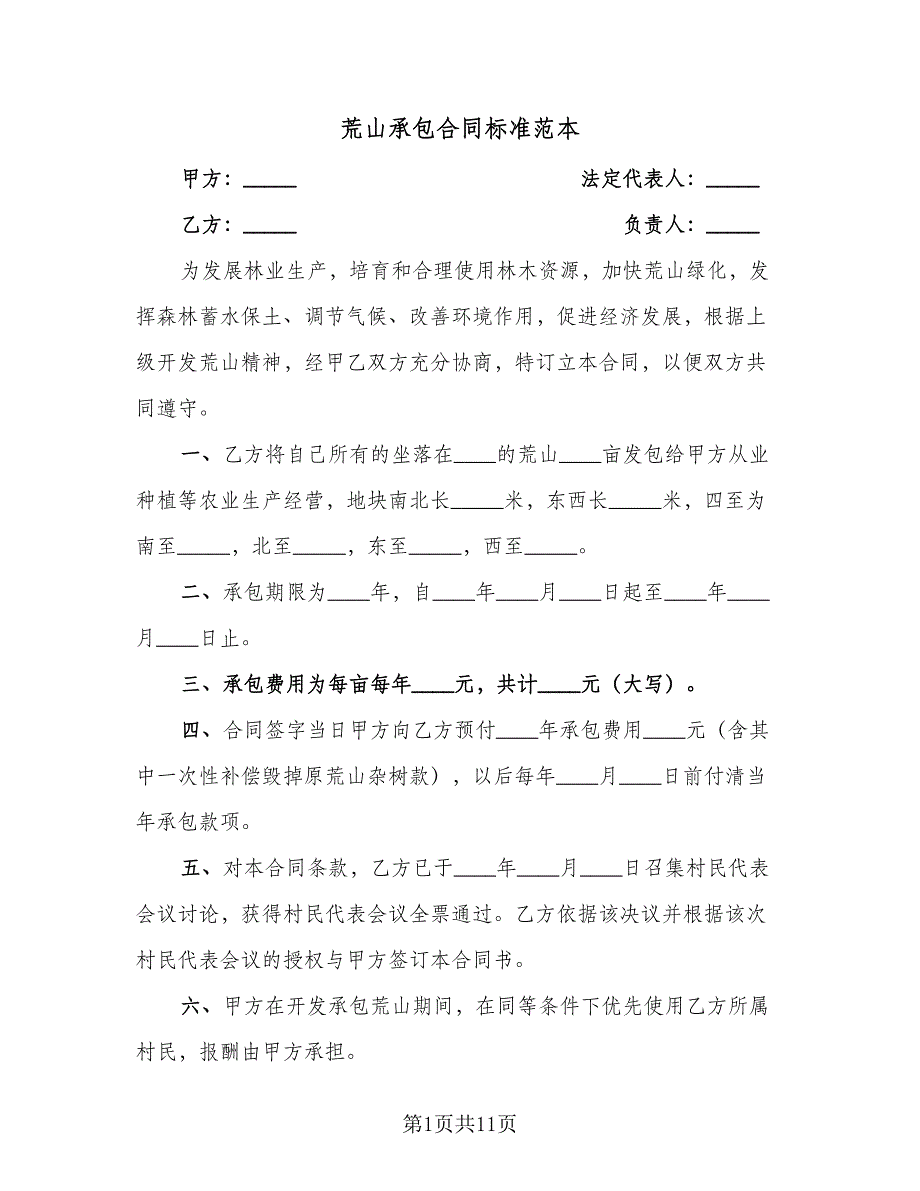 荒山承包合同标准范本
甲方：_____ 法定代表人：_____
乙方：_____ 负责人：_____
为发展林业生产，培育和合理使用林木资源，加快荒山绿化，发
挥森林蓄水保土、调节气候、改善环境作用，促进经济发展，根据上
级开发荒山精神，经甲乙双方充分协商，特订立本合同，以便双方共
同遵守。
一、乙方将自己所有的坐落在____的荒山____亩发包给甲方从业
种植等农业生产经营，地块南北长_____米，东西长_____米，四至为
南至_____，北至_____，东至_____，西至_____。
二、承包期限为____年，自____年____月____日起至____年____
月____日止。
三、承包费用为每亩每年____元，共计____元（大写）。
四、合同签字当日甲方向乙方预付____年承包费用____元（含其
中一次性补偿毁掉原荒山杂树款），以后每年____月____日前付清当
年承包款项。
五、对本合同条款，乙方已于____年____月____日召集村民代表
会议讨论，获得村民代表会议全票通过。乙方依据该决议并根据该次
村民代表会议的授权与甲方签订本合同书。
六、甲方在开发承包荒山期间，在同等条件下优先使用乙方所属
村民，报酬由甲方承担。
第1页共11页